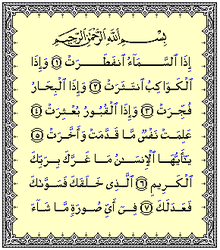 بِسْمِ ٱللَّهِ ٱلرَّحْمَٰنِ ٱلرَّحِيمِ
إِذَا ٱلسَّمَآءُ ٱنفَطَرَتْ ١ وَإِذَا
ٱلْكَوَاكِبُ ٱنتَثَرَتْ ٢ وَإِذَا ٱلْبِحَارُ
فُجِّرَتْ ٣ وَإِذَا ٱلْقُبُورُ بُعْثِرَتْ ٤
عَلِمَتْ نَفْسٌ مَّا قَدَّمَتْ وَأَخَّرَتْ ٥
يَٰٓأَيُّهَا ٱلْإِنسَٰنُ مَا غَرَّكَ بِرَبِّكَ
ٱلْكَرِيمِ ٦ ٱلَّذِى خَلَقَكَ فَسَوَّىٰكَ
فَعَدَلَكَ ٧ فِىٓ أَىِّ صُورَةٍ مَّا شَآءَ